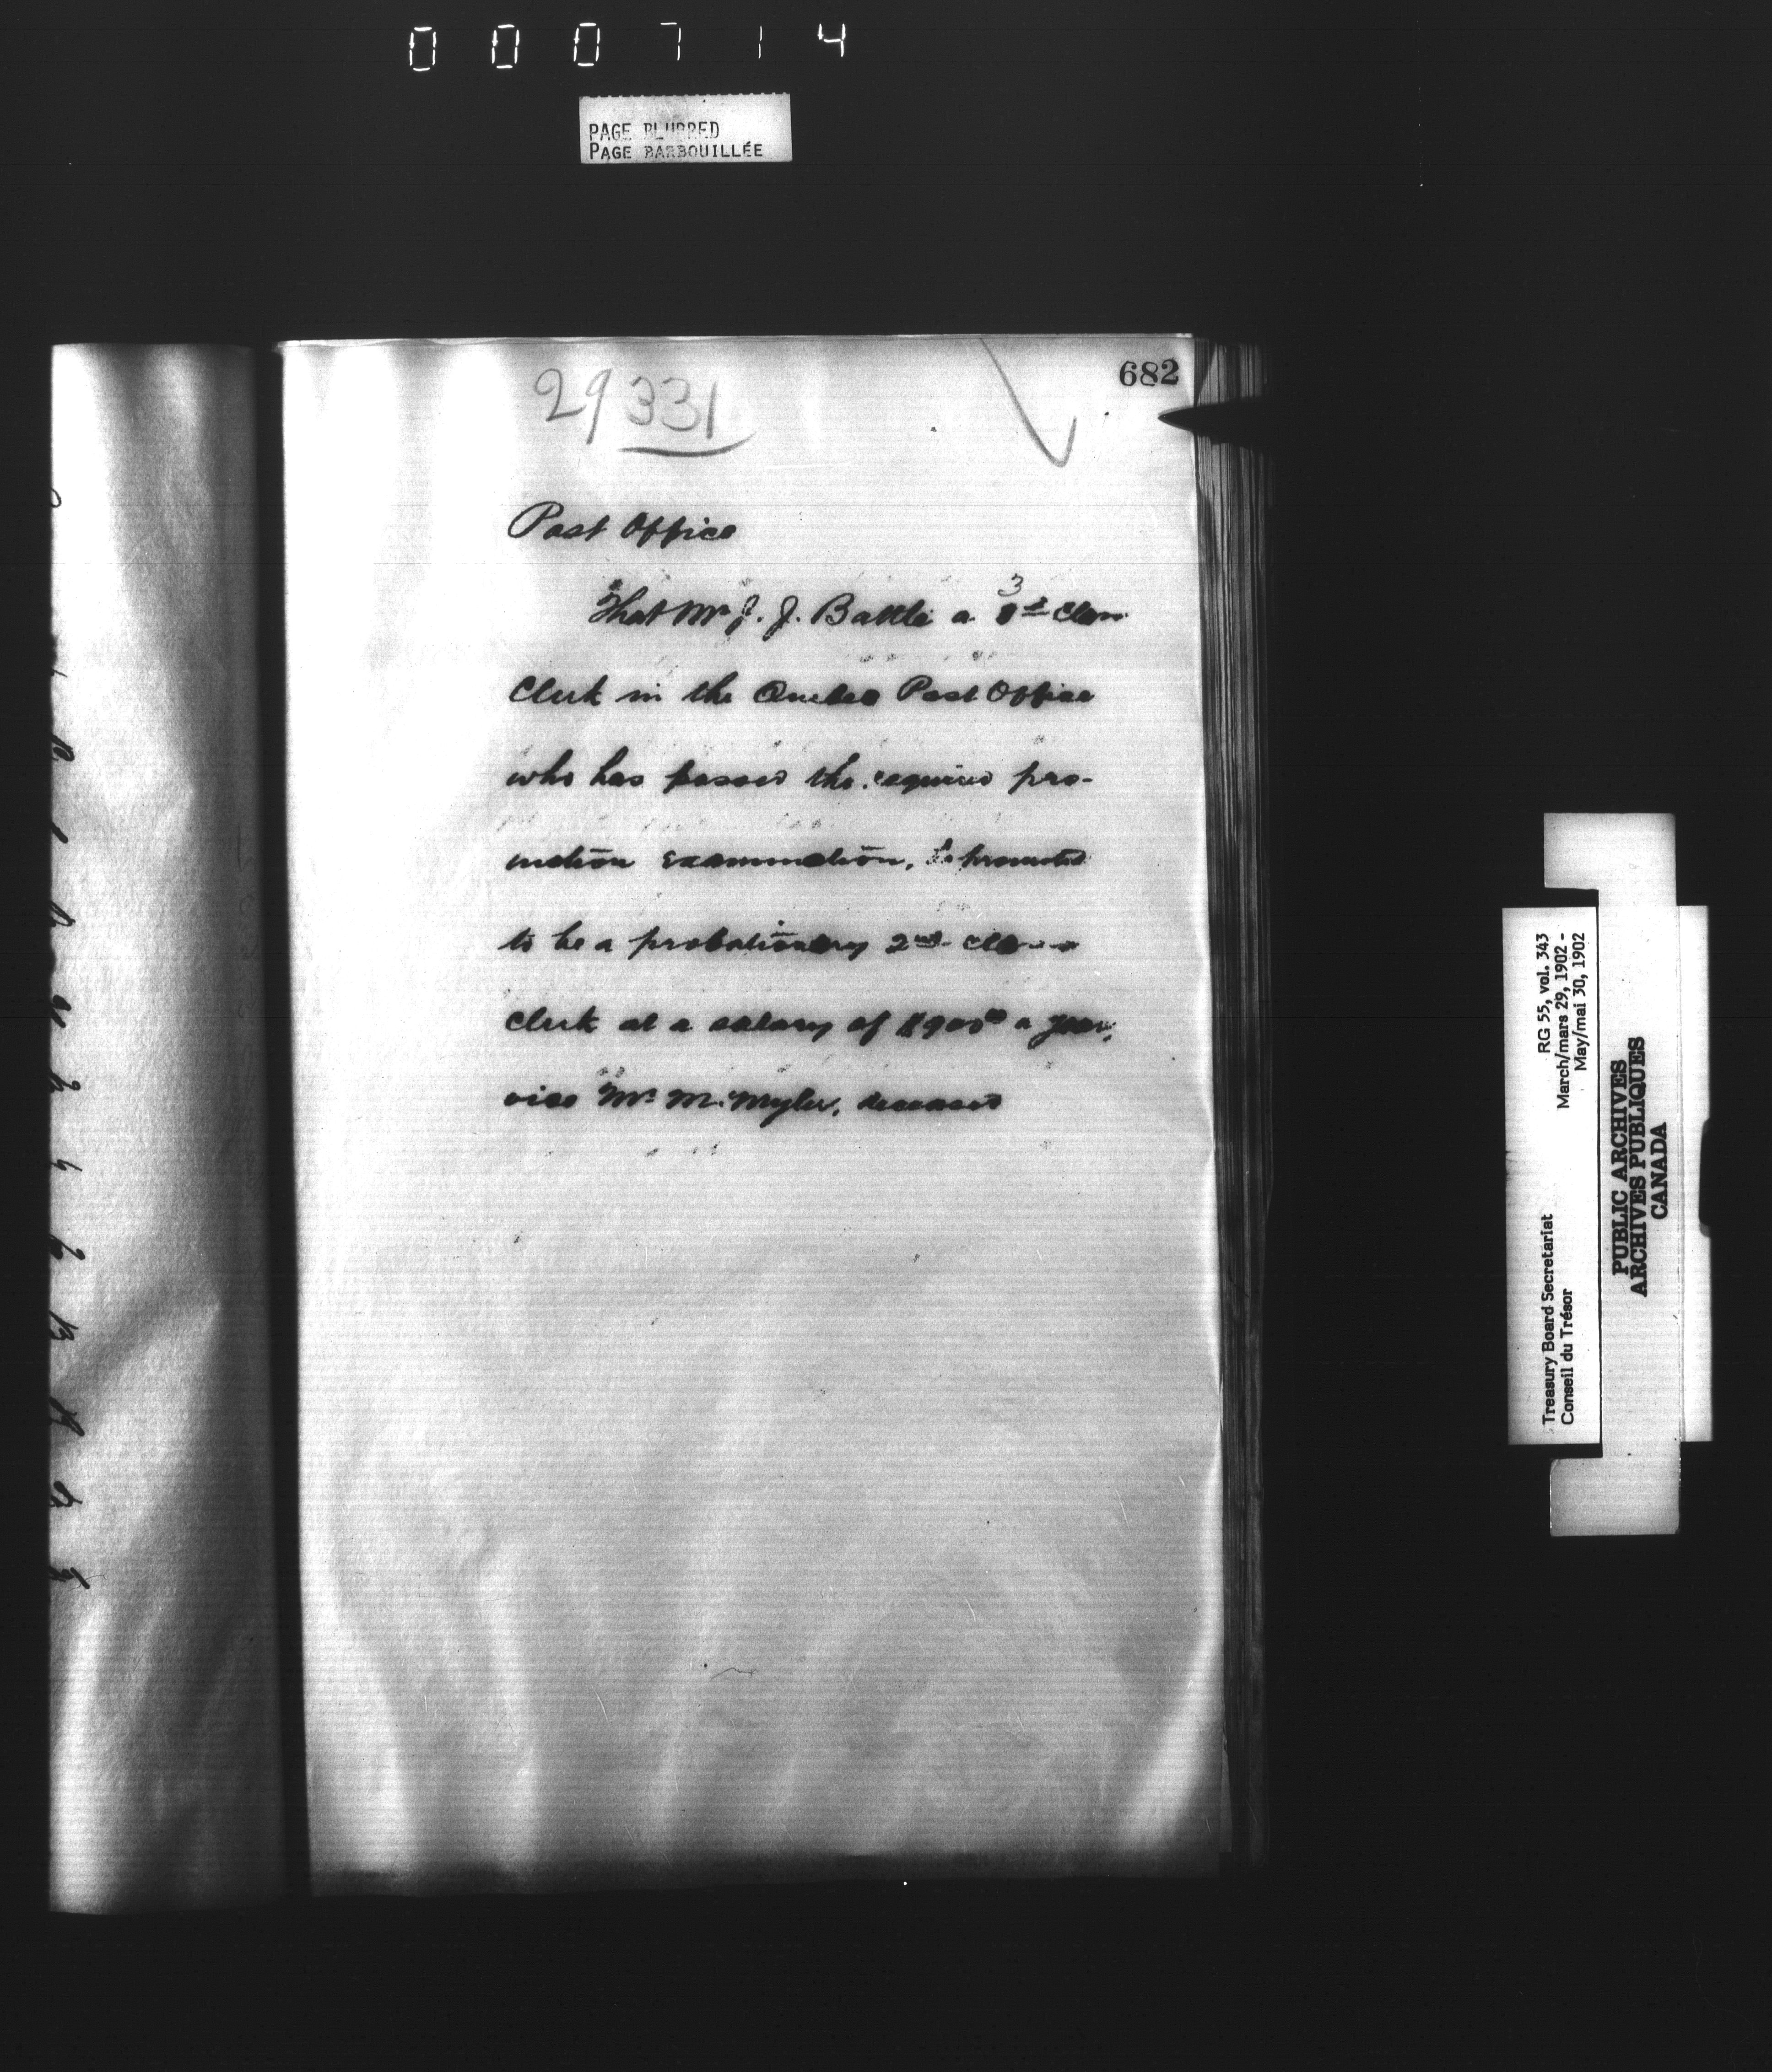 000714
PAGE BLURRED
PAGE BARBOUILLÉE
682
29331
Post Office
That Mr J. J. Battle a 3 class
Clerk in the Quebec Post Office
who has passed the required pro-
motion examination, be promoted
to be a probationary 2nd class
clerk at a salary of $900⁰⁰ a year,
vice Mr M. Myler, deceased
Treasury Board Secretariat RG 55, vol. 343
Conseil du Trésor March/mars 29, 1902 -
May/mai 30, 1902
PUBLIC ARCHIVES
ARCHIVES PUBLIQUES
CANADA